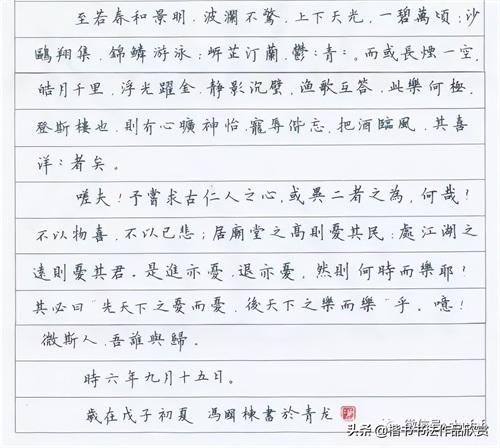 至若春和景明，波瀾不驚，上下天光，一碧萬頃；沙
鷗翔集，錦鱗游泳；岍芷汀蘭，鬱：青：。而或長煙一空，
皓月千里，浮光躍金，靜影沉璧，渔歌互答，此樂何極。
登斯樓也，則有心曠神怡，寵辱偕忘，把酒臨風，其喜
洋：者矣。
嗟夫！予嘗求古仁人之心，或異二者之為，何哉！
不以物喜，不以已悲；居廟堂之高則憂其民；處江湖之
遠則憂其君。是進亦憂，退亦憂，然則何時而樂耶！
其必曰“先天下之憂而憂，後天下之樂而樂”乎。噫！
微斯人，吾誰與歸。
時六年九月十五日。
歲在戊子初夏 馮國棟書於青龙
头条@楷书书法作品欣赏